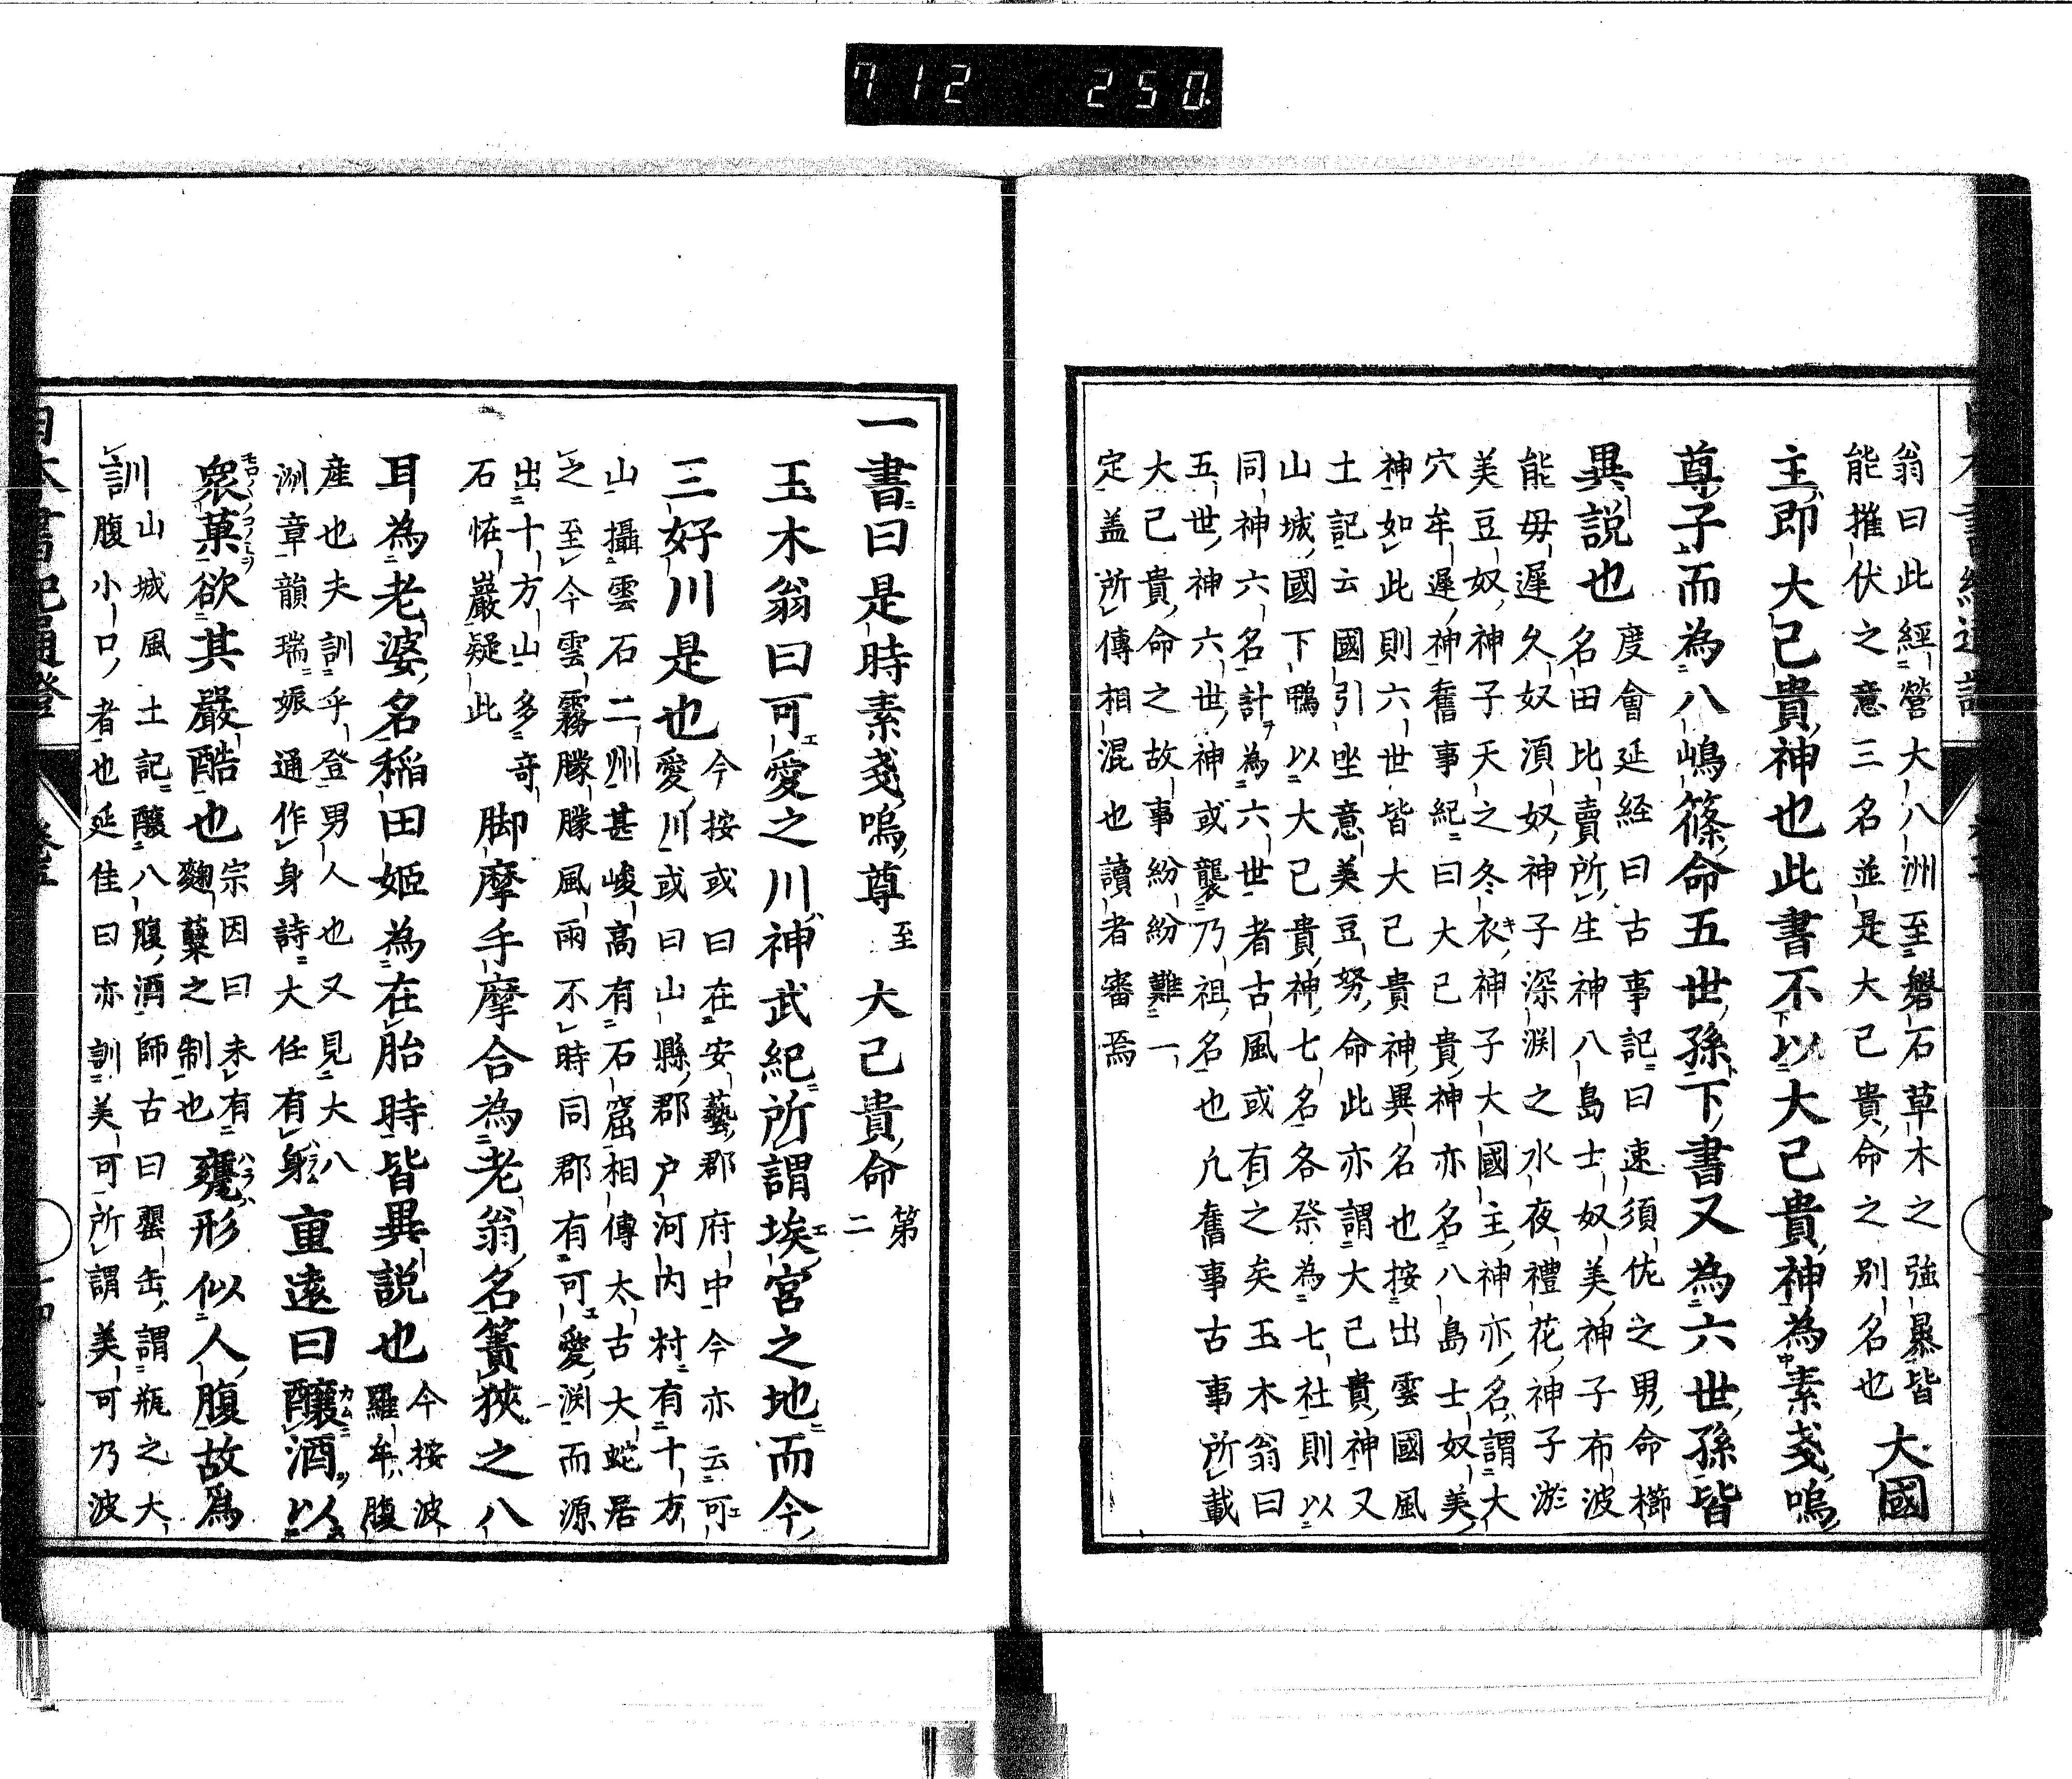 712 250
翁曰此經營大八洲至磐石草木之強暴皆
能摧伏之意三名並是大己貴命之別名也
大國
主即大己貴神也此書不以大己貴神為素戔嗚
尊子而為八嶋篠命五世孫下書又為六世孫皆
異説也
度會延経曰古事記曰速須佐之男命櫛
名田比賣所生神八島士奴美神子布波
能母遅久奴須奴神子深渕之水夜禮花神子淤
美豆奴神子天之冬衣神子大國主神亦名謂大
穴牟遅神舊事紀曰大己貴神亦名八島士奴美
神如此則六世皆大己貴神異名也按出雲國風
土記云國引坐意美豆努命此亦謂大己貴神又
山城國下鴨以大己貴神七名各祭為七社則以
同神六名計為六世者古風或有之矣玉木翁曰
五世神六世神或襲乃祖名也凡舊事古事所載
大己貴命之故事紛紛難一
定盖所傳相混也讀者審焉
一書曰是時素戔嗚尊至大己貴命第二
玉木翁曰可愛之川神武紀所謂埃宮之地而今
三好川是也
今按或曰在安藝郡府中今亦云可
愛川或曰山縣郡戶河內村有十方
山攝雲石二州甚峻高有石窟相傳太古大蛇居
之至今雲霧朦朦風雨不時同郡有可愛渕而源
出十方山多奇
石恠巖疑此
脚摩手摩合為老翁名簀狹之八
耳為老婆名稲田姫為在胎時皆異説也
今按波
羅牟腹
産也夫訓乎登男人也又見大八
洲章韻瑞娠通作身詩大任有身
重遠曰釀酒以
衆菓欲其嚴酷也
宗因曰未有
麹蘖之制也
甕形似人腹故為
訓
山城風土記釀八腹酒師古曰罌缶謂瓶之大
腹小口者也延佳曰亦訓美可所謂美可乃波